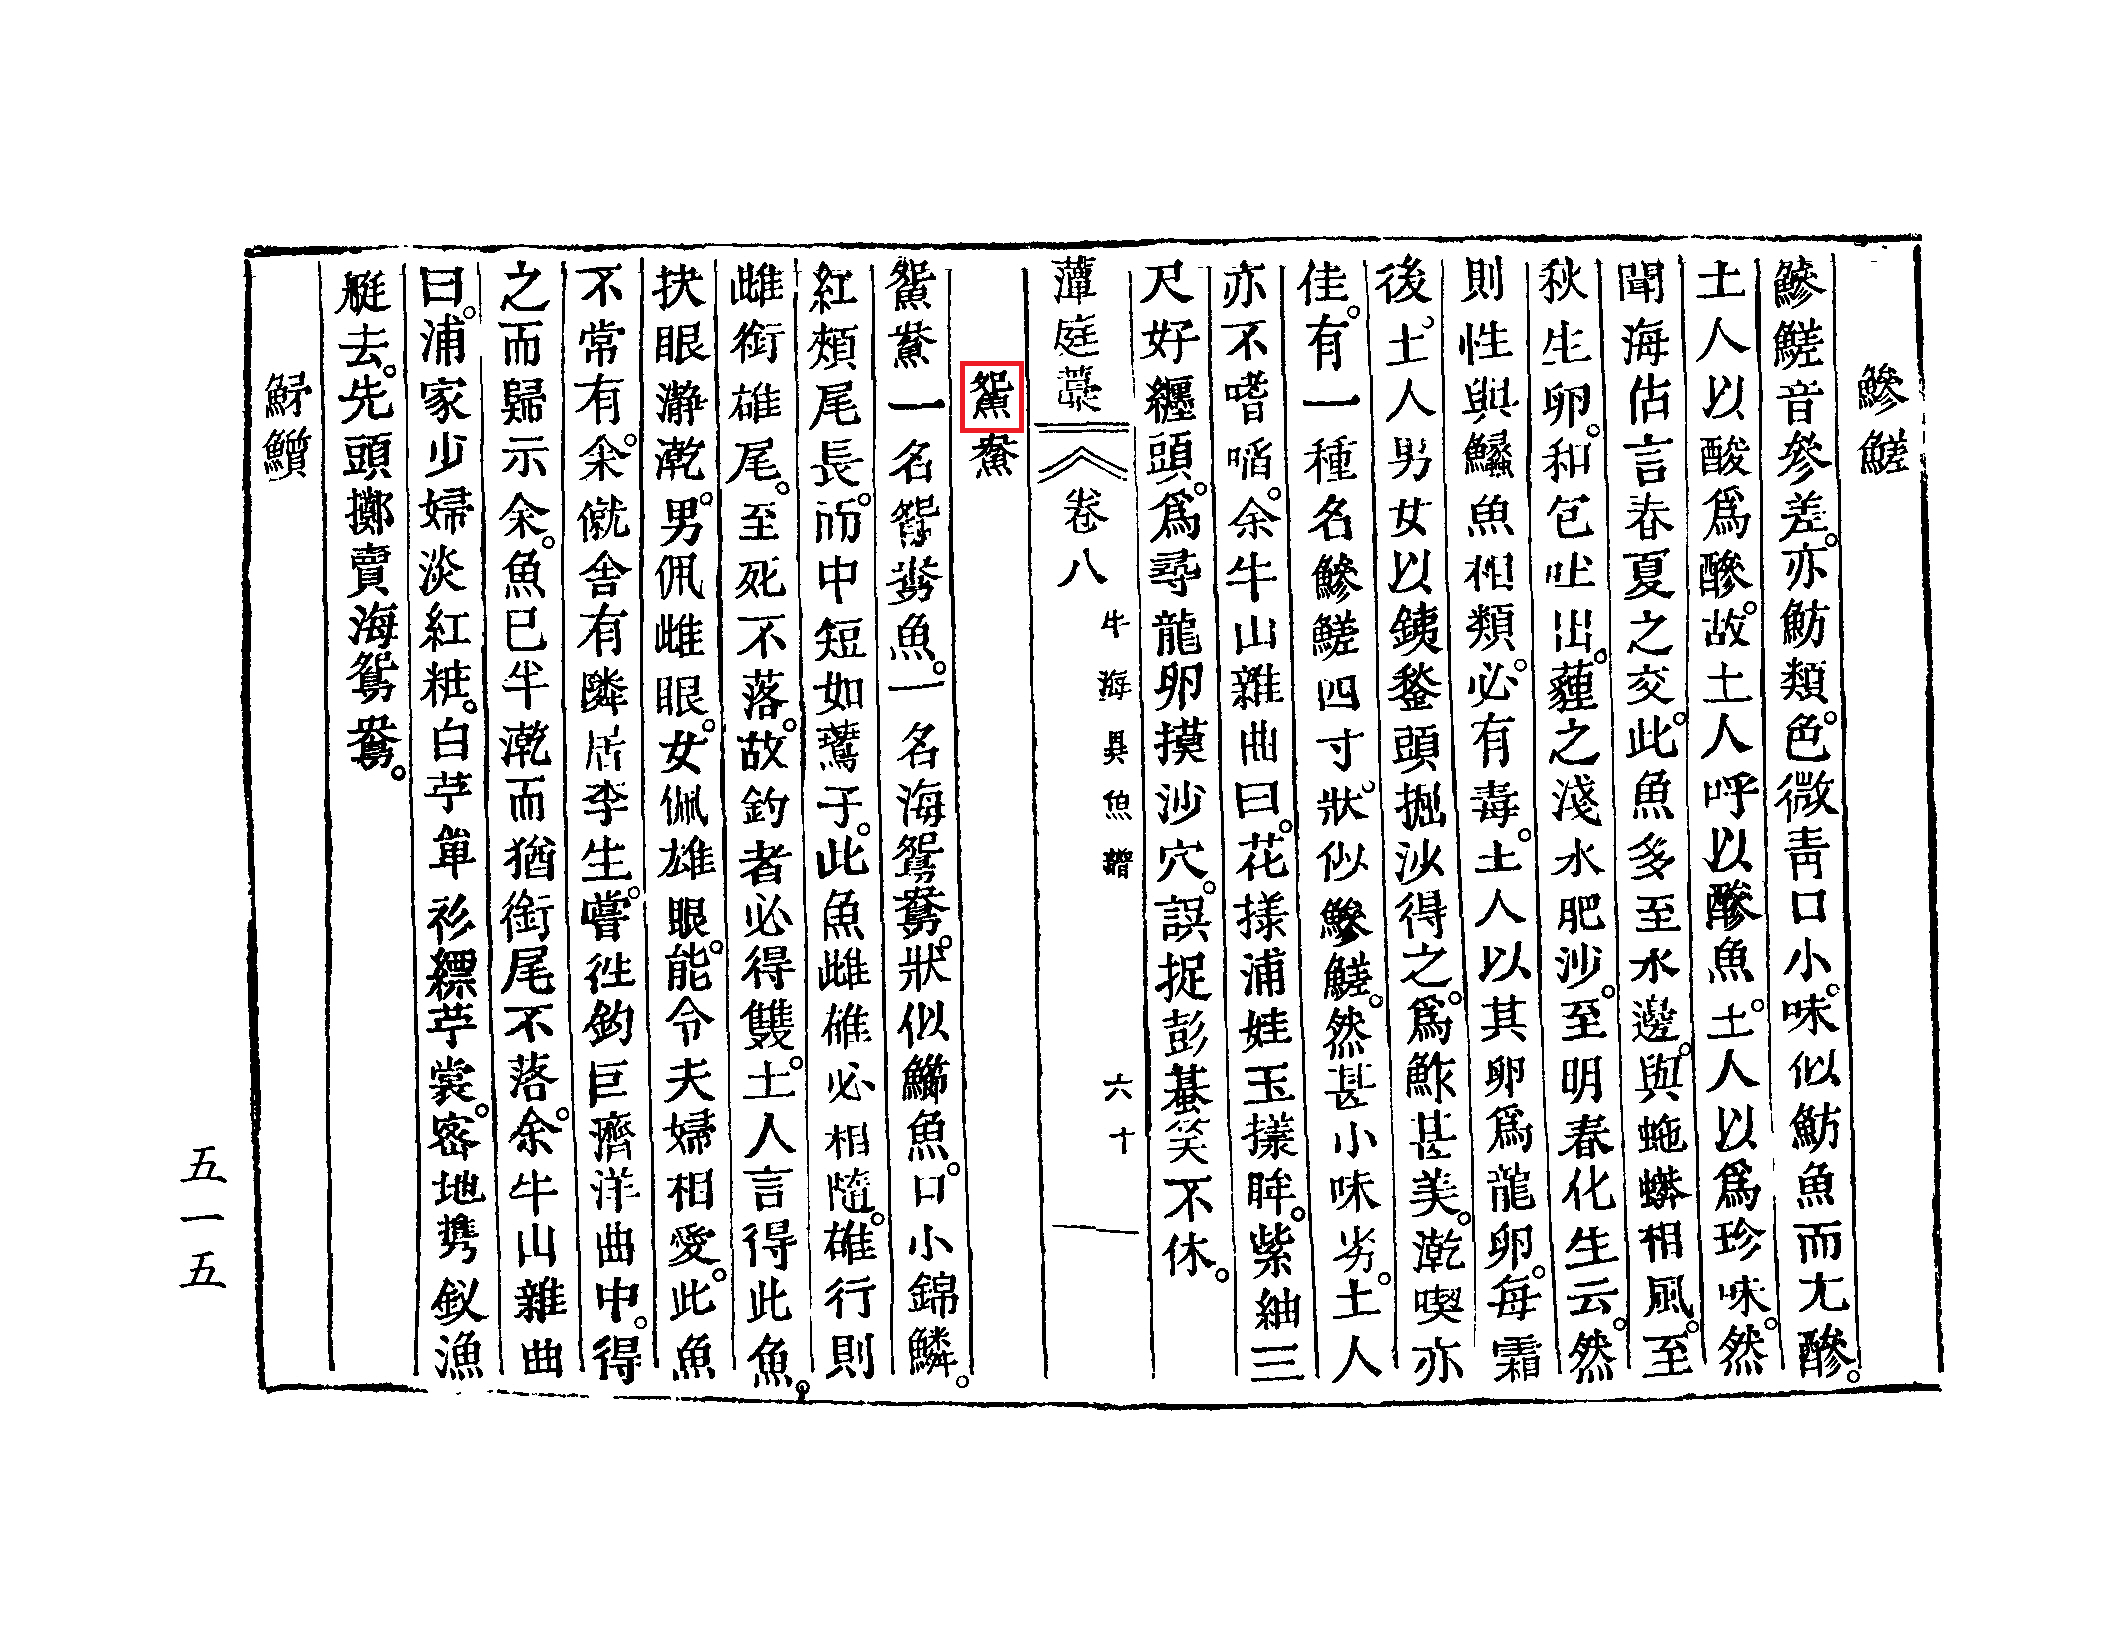 鰺䱹
鰺䱹音參差。亦魴類。色微靑口小。味似魴魚而尤醦。
土人以酸爲醦。故土人呼以醦魚。土人以爲珍味。然
聞海估言春夏之交。此魚多至水邊。與虵蟒相風。至
秋生卵。和包吐出。薶之淺水肥沙。至明春化生云。然
則性與鱺魚相類。必有毒。土人以其卵爲龍卵。每霜
後。土人男女以銕鍫頭掘沙得之。爲鮓甚美。漧喫亦
佳。有一種名鰺䱹四寸。狀似鰺䱹。然甚小味劣。土人
亦不嗜啗。余牛山雜曲曰。花㨾浦娃玉㨾眸。紫紬三
尺好纏頭。爲尋龍卵摸沙穴。誤捉彭蜞笑不休。
藫庭藁 卷八 牛海異魚譜 六十
⿱夗魚⿱央魚
⿱夗魚⿱央魚一名鴛鴦魚。一名海鴛鴦。狀似鯽魚。口小錦鱗。
紅頰尾長。而中短如鷰子。此魚雌雄必相隨。雄行則
雌銜雄尾。至死不落。故釣者必得雙。土人言得此魚。
抉眼瀞漧。男佩雌眼。女佩雄眼。能令夫婦相愛。此魚
不常有。余僦舍有隣居李生。嘗徃釣巨濟洋曲中。得
之而歸示余。魚已半漧而猶銜尾不落。余牛山雜曲
曰。浦家少婦淡紅粧。白苧單衫縹苧裳。密地携釵漁
艇去。先頭擲賣海鴛鴦。
魣
五一五